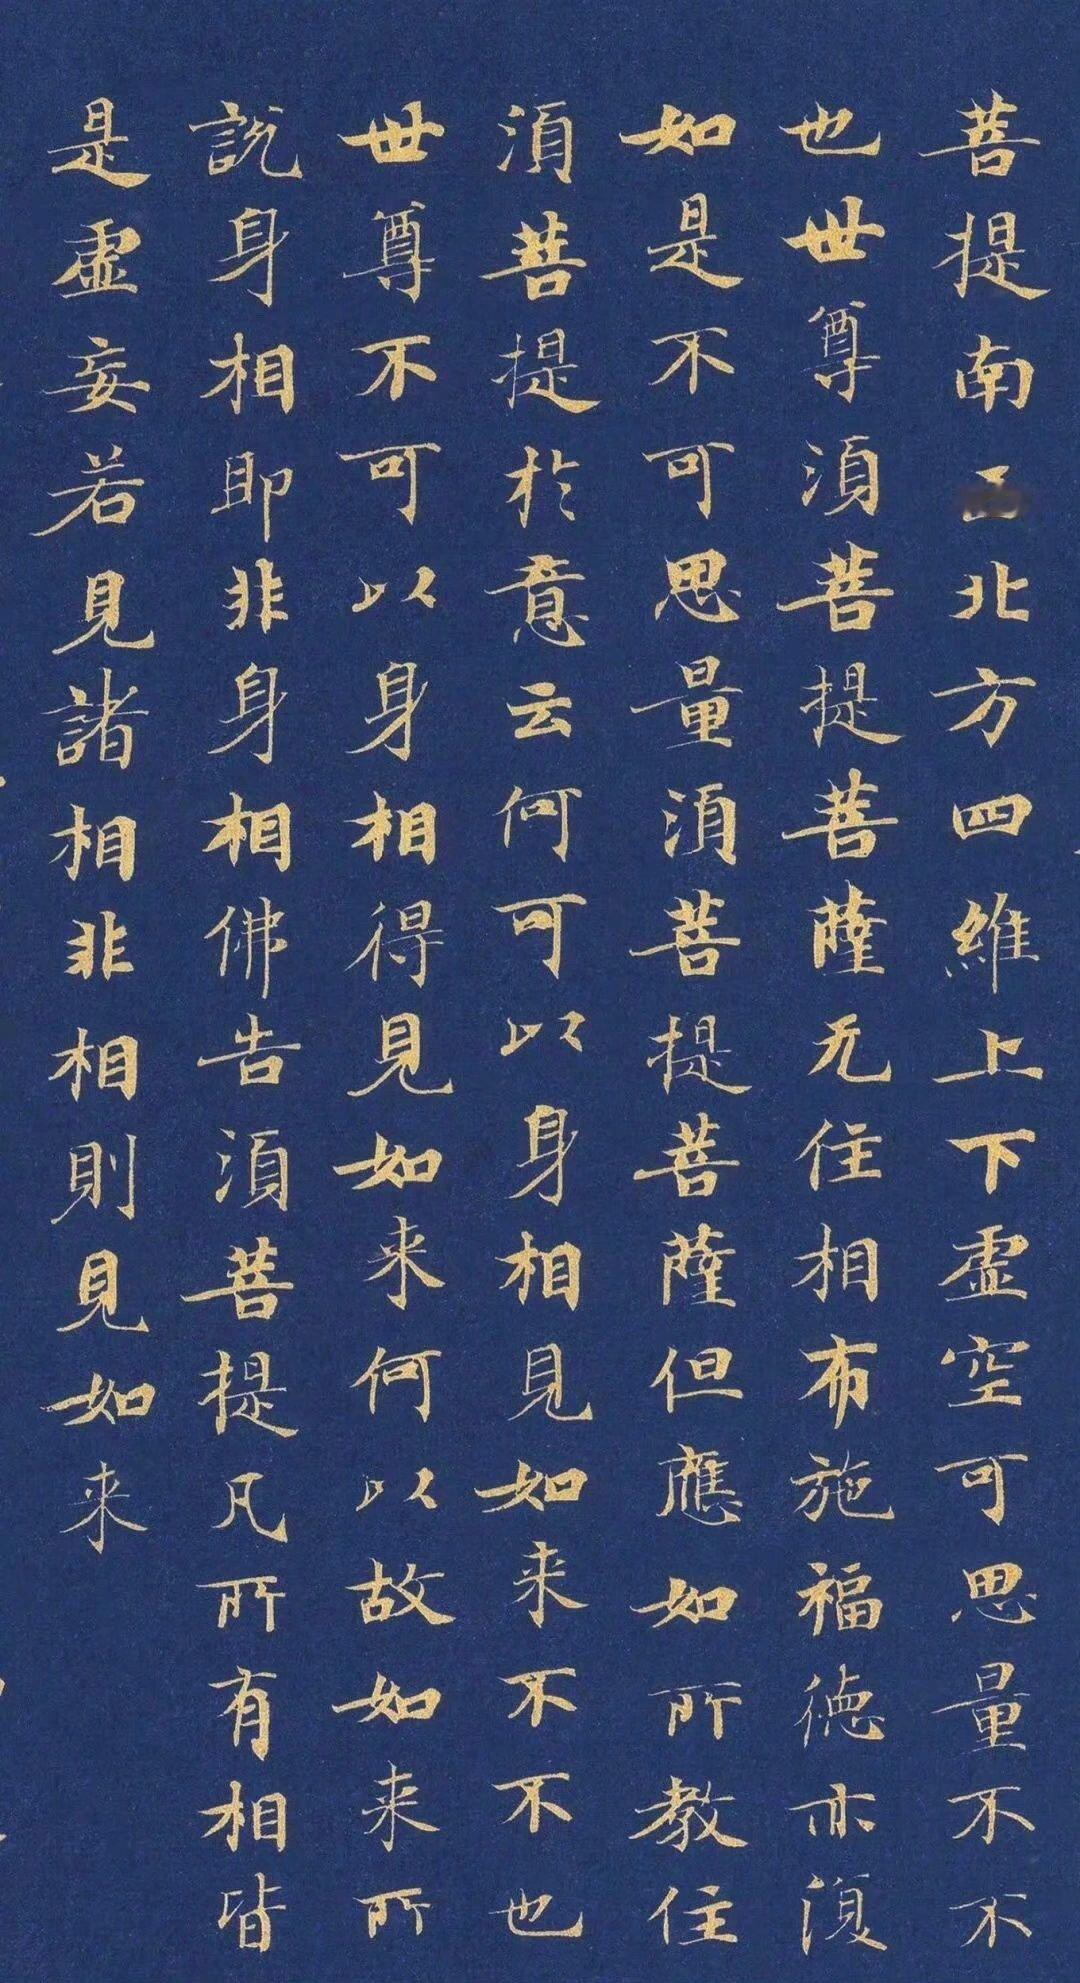 菩提南西北方四維上下虛空可思量不不
也世尊須菩提菩薩无住相布施福德亦復
如是不可思量須菩提菩薩但應如所教住
須菩提於意云何可以身相見如来不不也
世尊不可以身相得見如来何以故如来所
說身相即非身相佛告須菩提凡所有相皆
是虛妄若見諸相非相則見如来